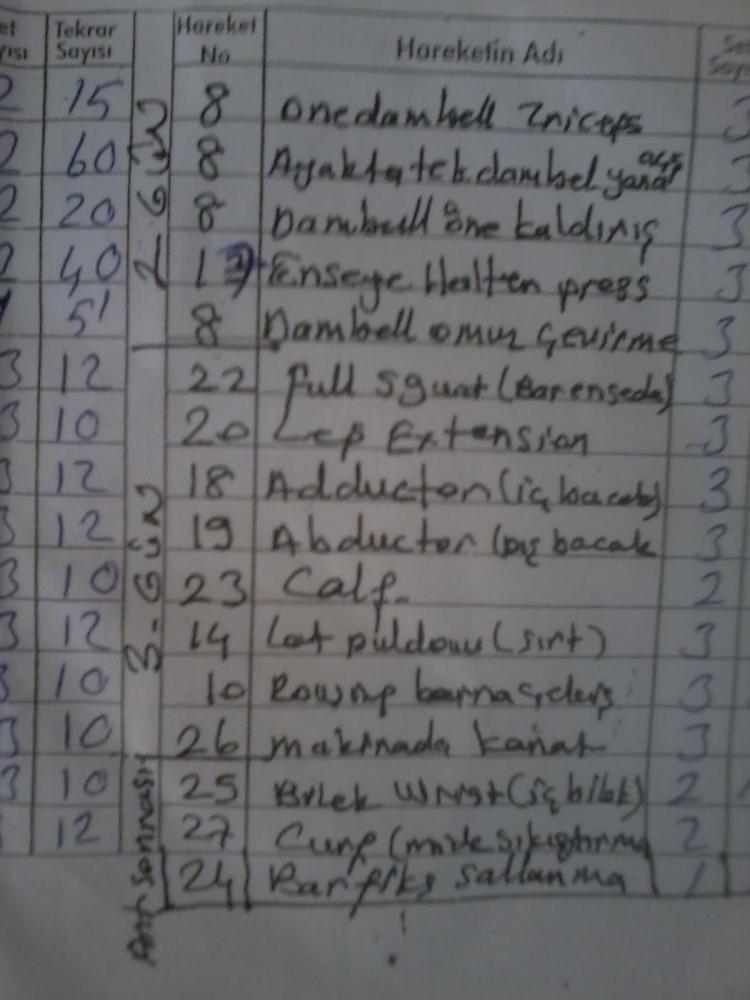 et yısı Tekrar Sayısı Hareket No Hareketin Adı Se Sayı
2 15 8 onedambell Triceps 3
2 60 8 Ayakta tek dambel yana açış 3
2 20 8 Dambell öne kaldırış 3
2 40 Enseye Halten press 3
51 8 Dambell omuz çevirme 3
3 12 22 full sguat (Bar ensede) 3
3 10 20 Lep Extension 3
3 12 18 Adductor (iç bacak) 3
3 12 19 Abductor (Dış bacak 3
3 10 23 Calf. 2
3 12 14 Lat puldouu (sırt) 3
3 10 10 Rowınp barna çekiş 3
3 10 26 makinada kanat 3
3 10 25 Bilek Wrıst (iç bilek) 2
12 27 Curıp (mide sıkıştırma 2
24 Barfiks sallanma 1
2. Gün
3. Gün
Ant Sonrası